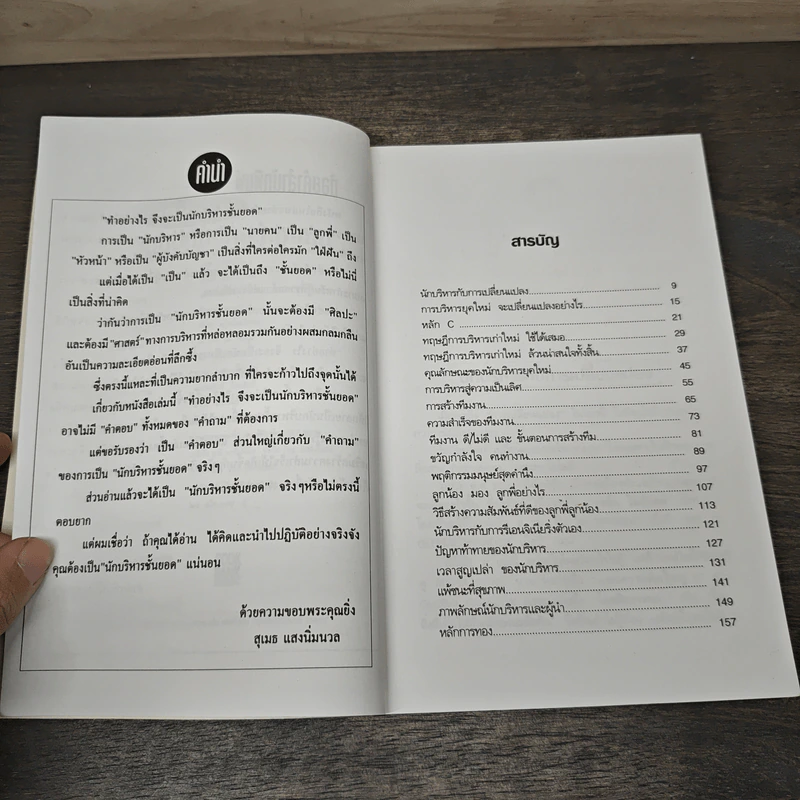 คำนำ
"ทำอย่างไร จึงจะเป็นนักบริหารชั้นยอด"
การเป็น "นักบริหาร" หรือการเป็น "นายคน" เป็น "ลูกพี่" เป็น
"หัวหน้า" หรือเป็น "ผู้บังคับบัญชา" เป็นสิ่งที่ใครต่อใครมัก "ใฝ่ฝัน" ถึง
แต่เมื่อได้เป็น "เป็น" แล้ว จะได้เป็นถึง "ชั้นยอด" หรือไม่นี่
เป็นสิ่งที่น่าคิด
ว่ากันว่าการเป็น "นักบริหารชั้นยอด" นั้นจะต้องมี "ศิลปะ"
และต้องมี "ศาสตร์" ทางการบริหารที่หล่อหลอมรวมกันอย่างผสมกลมกลืน
อันเป็นความละเอียดอ่อนที่ลึกซึ้ง
ซึ่งตรงนี้แหละที่เป็นความยากลำบาก ที่ใครจะก้าวไปถึงจุดนั้นได้
เกี่ยวกับหนังสือเล่มนี้ "ทำอย่างไร จึงจะเป็นนักบริหารชั้นยอด"
อาจไม่มี "คำตอบ" ทั้งหมดของ "คำถาม" ที่ต้องการ
แต่ขอรับรองว่า เป็น "คำตอบ" ส่วนใหญ่เกี่ยวกับ "คำถาม"
ของการเป็น "นักบริหารชั้นยอด" จริงๆ
ส่วนอ่านแล้วจะได้เป็น "นักบริหารชั้นยอด" จริงๆหรือไม่ตรงนี้
ตอบยาก
แต่ผมเชื่อว่า ถ้าคุณได้อ่าน ได้คิดและนำไปปฏิบัติอย่างจริงจัง
คุณต้องเป็น"นักบริหารชั้นยอด" แน่นอน
ด้วยความขอบพระคุณยิ่ง
สุเมธ แสงนิ่มนวล
สารบัญ
นักบริหารกับการเปลี่ยนแปลง 9
การบริหารยุคใหม่ จะเปลี่ยนแปลงอย่างไร 15
หลัก C 21
ทฤษฎีการบริหารเก่าใหม่ ใช้ได้เสมอ 29
ทฤษฎีการบริหารเก่าใหม่ ล้วนน่าสนใจทั้งสิ้น 37
คุณลักษณะของนักบริหารยุคใหม่ 45
การบริหารสู่ความเป็นเลิศ 55
การสร้างทีมงาน 65
ความสำเร็จของทีมงาน 73
ทีมงาน ดี/ไม่ดี และ ขั้นตอนการสร้างทีม 81
ขวัญกำลังใจ คนทำงาน 89
พฤติกรรมมนุษย์สุดคำนึง 97
ลูกน้อง มอง ลูกพี่อย่างไร 107
วิธีสร้างความสัมพันธ์ที่ดีของลูกพี่ลูกน้อง 113
นักบริหารกับการรีเอนจิเนียริ่งตัวเอง 121
ปัญหาท้าทายของนักบริหาร 127
เวลาสูญเปล่า ของนักบริหาร 131
แพ้ชนะที่สุขภาพ 141
ภาพลักษณ์นักบริหารและผู้นำ 149
หลักการทอง 157